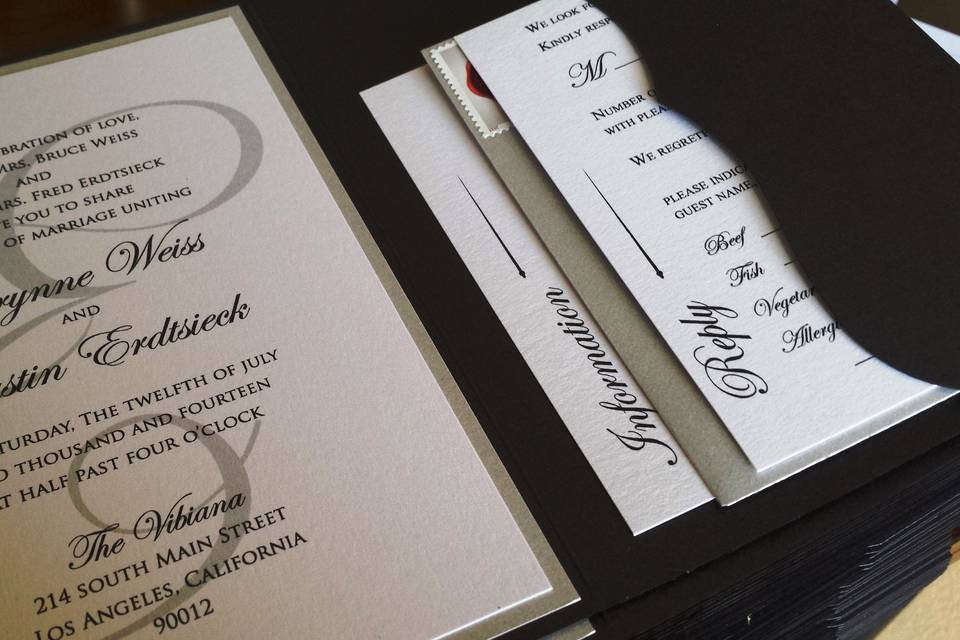 BRATION OF LOVE,
MRS. BRUCE WEISS
AND
RS. FRED ERDTSIECK
E YOU TO SHARE
OF MARRIAGE UNITING
rynne Weiss
AND
stin Erdtsieck
TURDAY, THE TWELFTH OF JULY
O THOUSAND AND FOURTEEN
AT HALF PAST FOUR O'CLOCK
The Vibiana
214 SOUTH MAIN STREET
LOS ANGELES, CALIFORNIA
90012
Information
Reply
WE LOOK F
KINDLY RESP
M
NUMBER O
WITH PLEA
WE REGRET
PLEASE INDIC
GUEST NAME,
Beef
Fish
Vegetar
Allergi